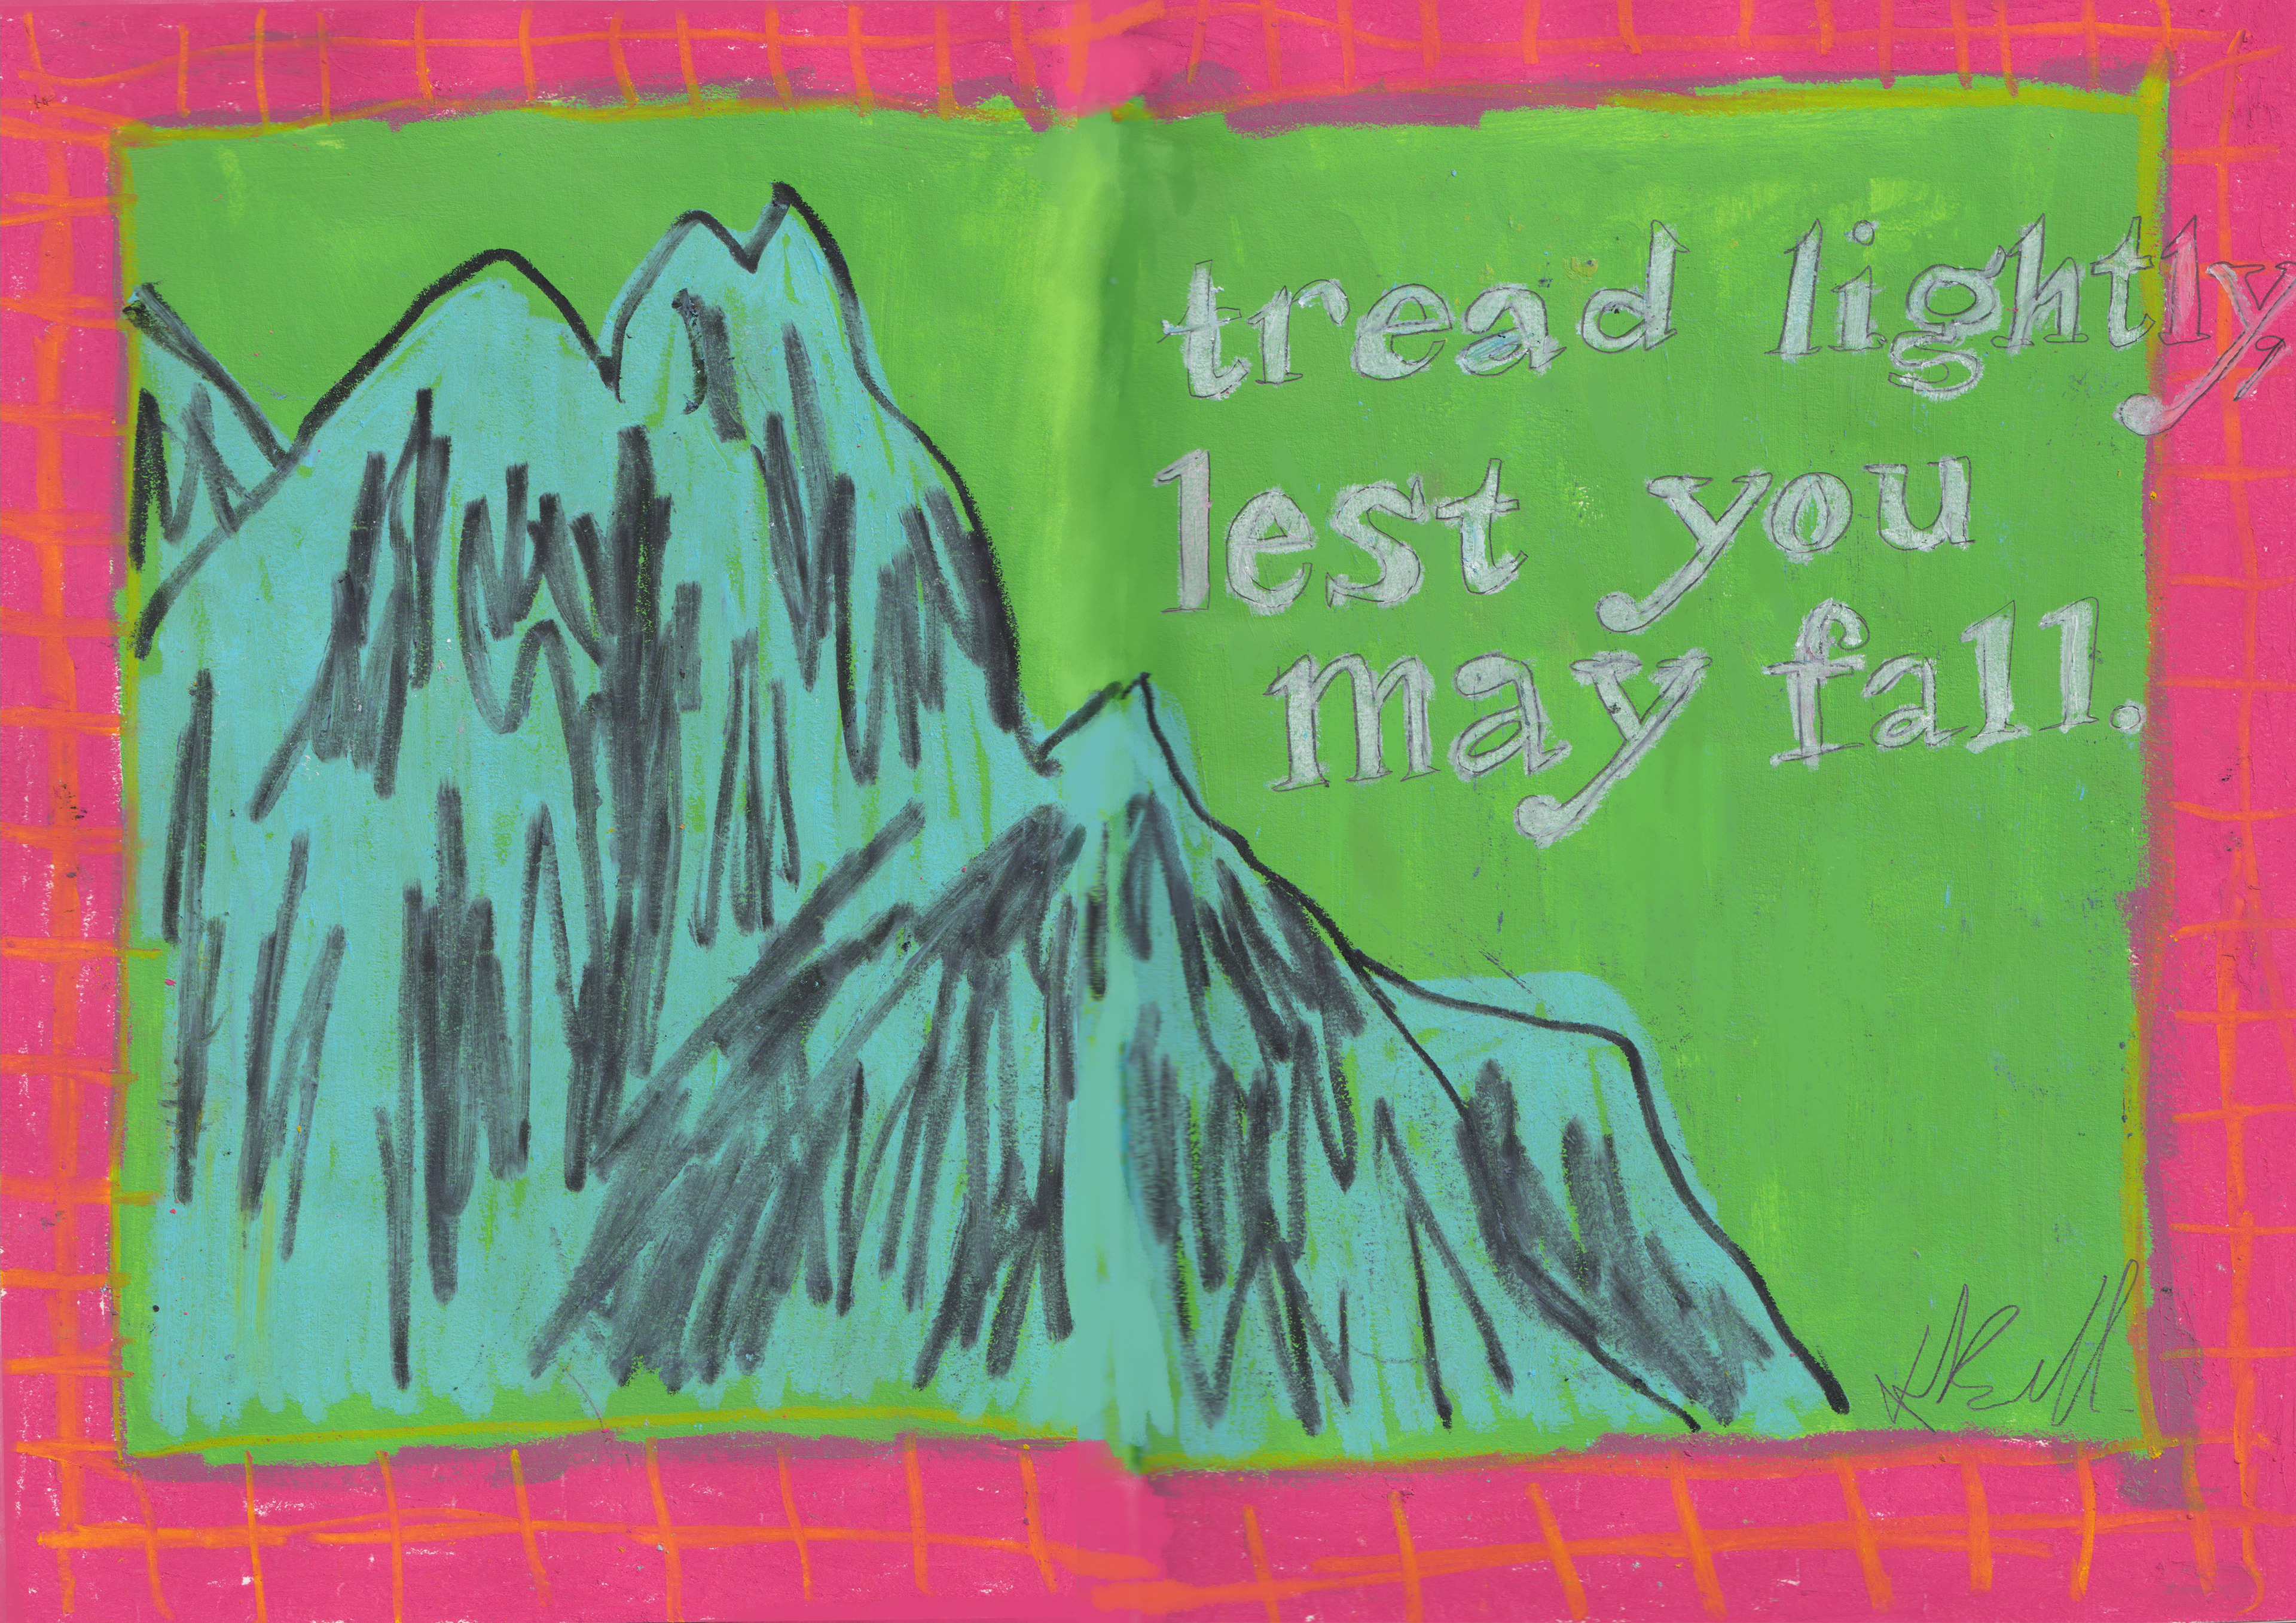 tread lightly,
lest you
may fall.